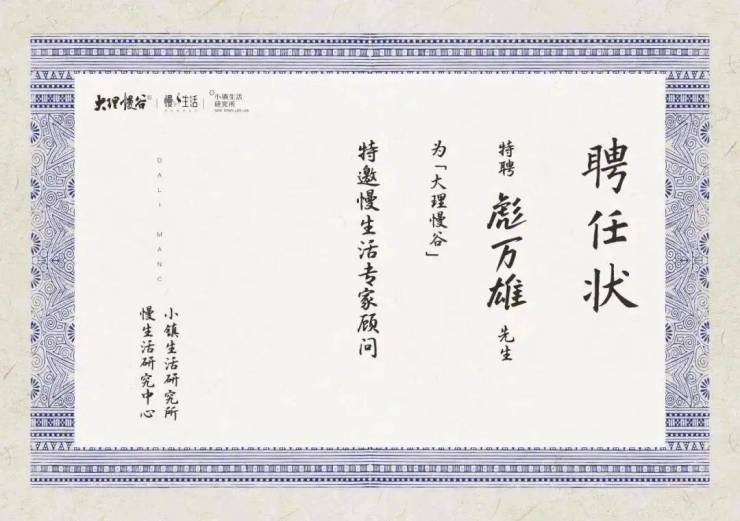 聘任状
特聘 彪万雄 先生
为「大理慢谷」
特邀慢生活专家顾问
小镇生活研究所
慢生活研究中心
大理慢谷
慢生活
小镇生活
研究所
DALI MANC